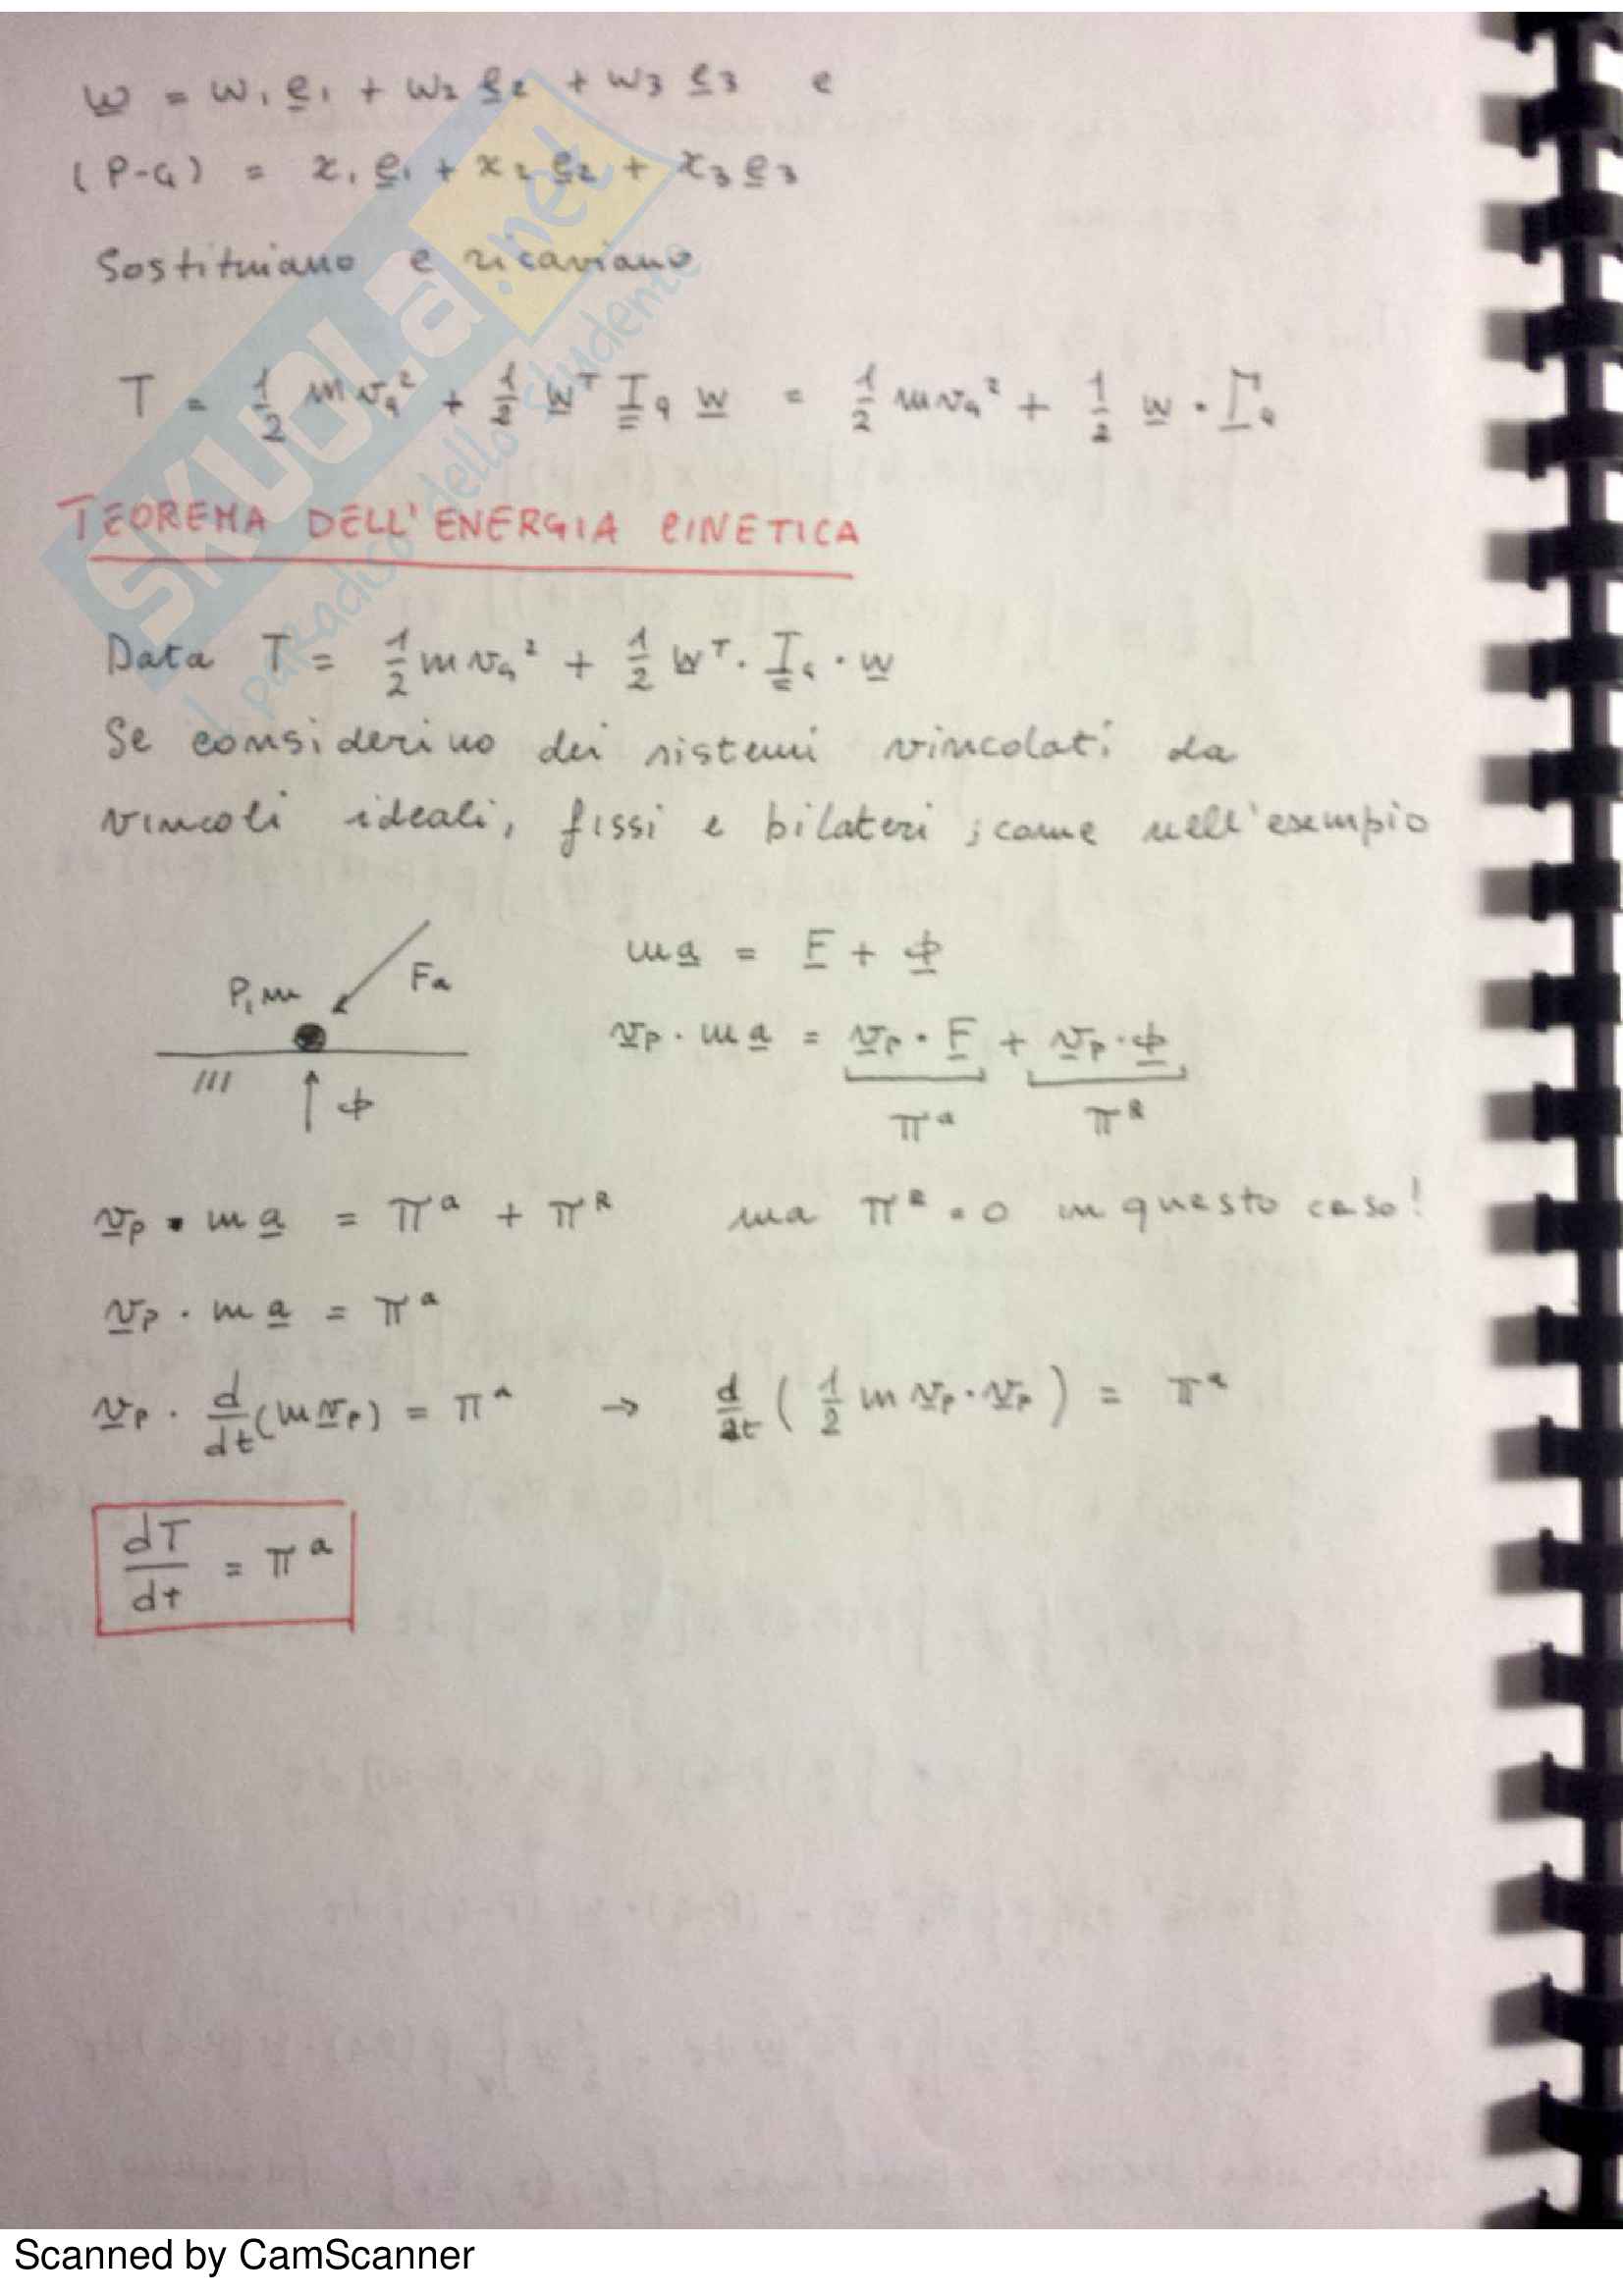 w = w₁ e₁ + w₂ e₂ + w₃ e₃ e
(P-G) = x₁ e₁ + x₂ e₂ + x₃ e₃
Sostituiamo e ricaviamo
T = 1/2 m v_G² + 1/2 w^T I_G w = 1/2 m v_G² + 1/2 w · Γ_G
TEOREMA DELL'ENERGIA CINETICA
Data T = 1/2 m v_G² + 1/2 w^T · I_G · w
Se considerino dei sistemi vincolati da
vincoli ideali, fissi e bilateri ; come nell'esempio
P, m Fa
ϕ
m a = F + ϕ
v_P · m a = v_P · F + v_P · ϕ
π^a π^R
v_P · m a = π^a + π^R ma π^R = 0 in questo caso!
v_P · m a = π^a
v_P · d/dt (m v_P) = π^a → d/dt ( 1/2 m v_P · v_P ) = π^a
dT/dt = π^a
SKUOLA.net
il paradiso dello studente
Scanned by CamScanner